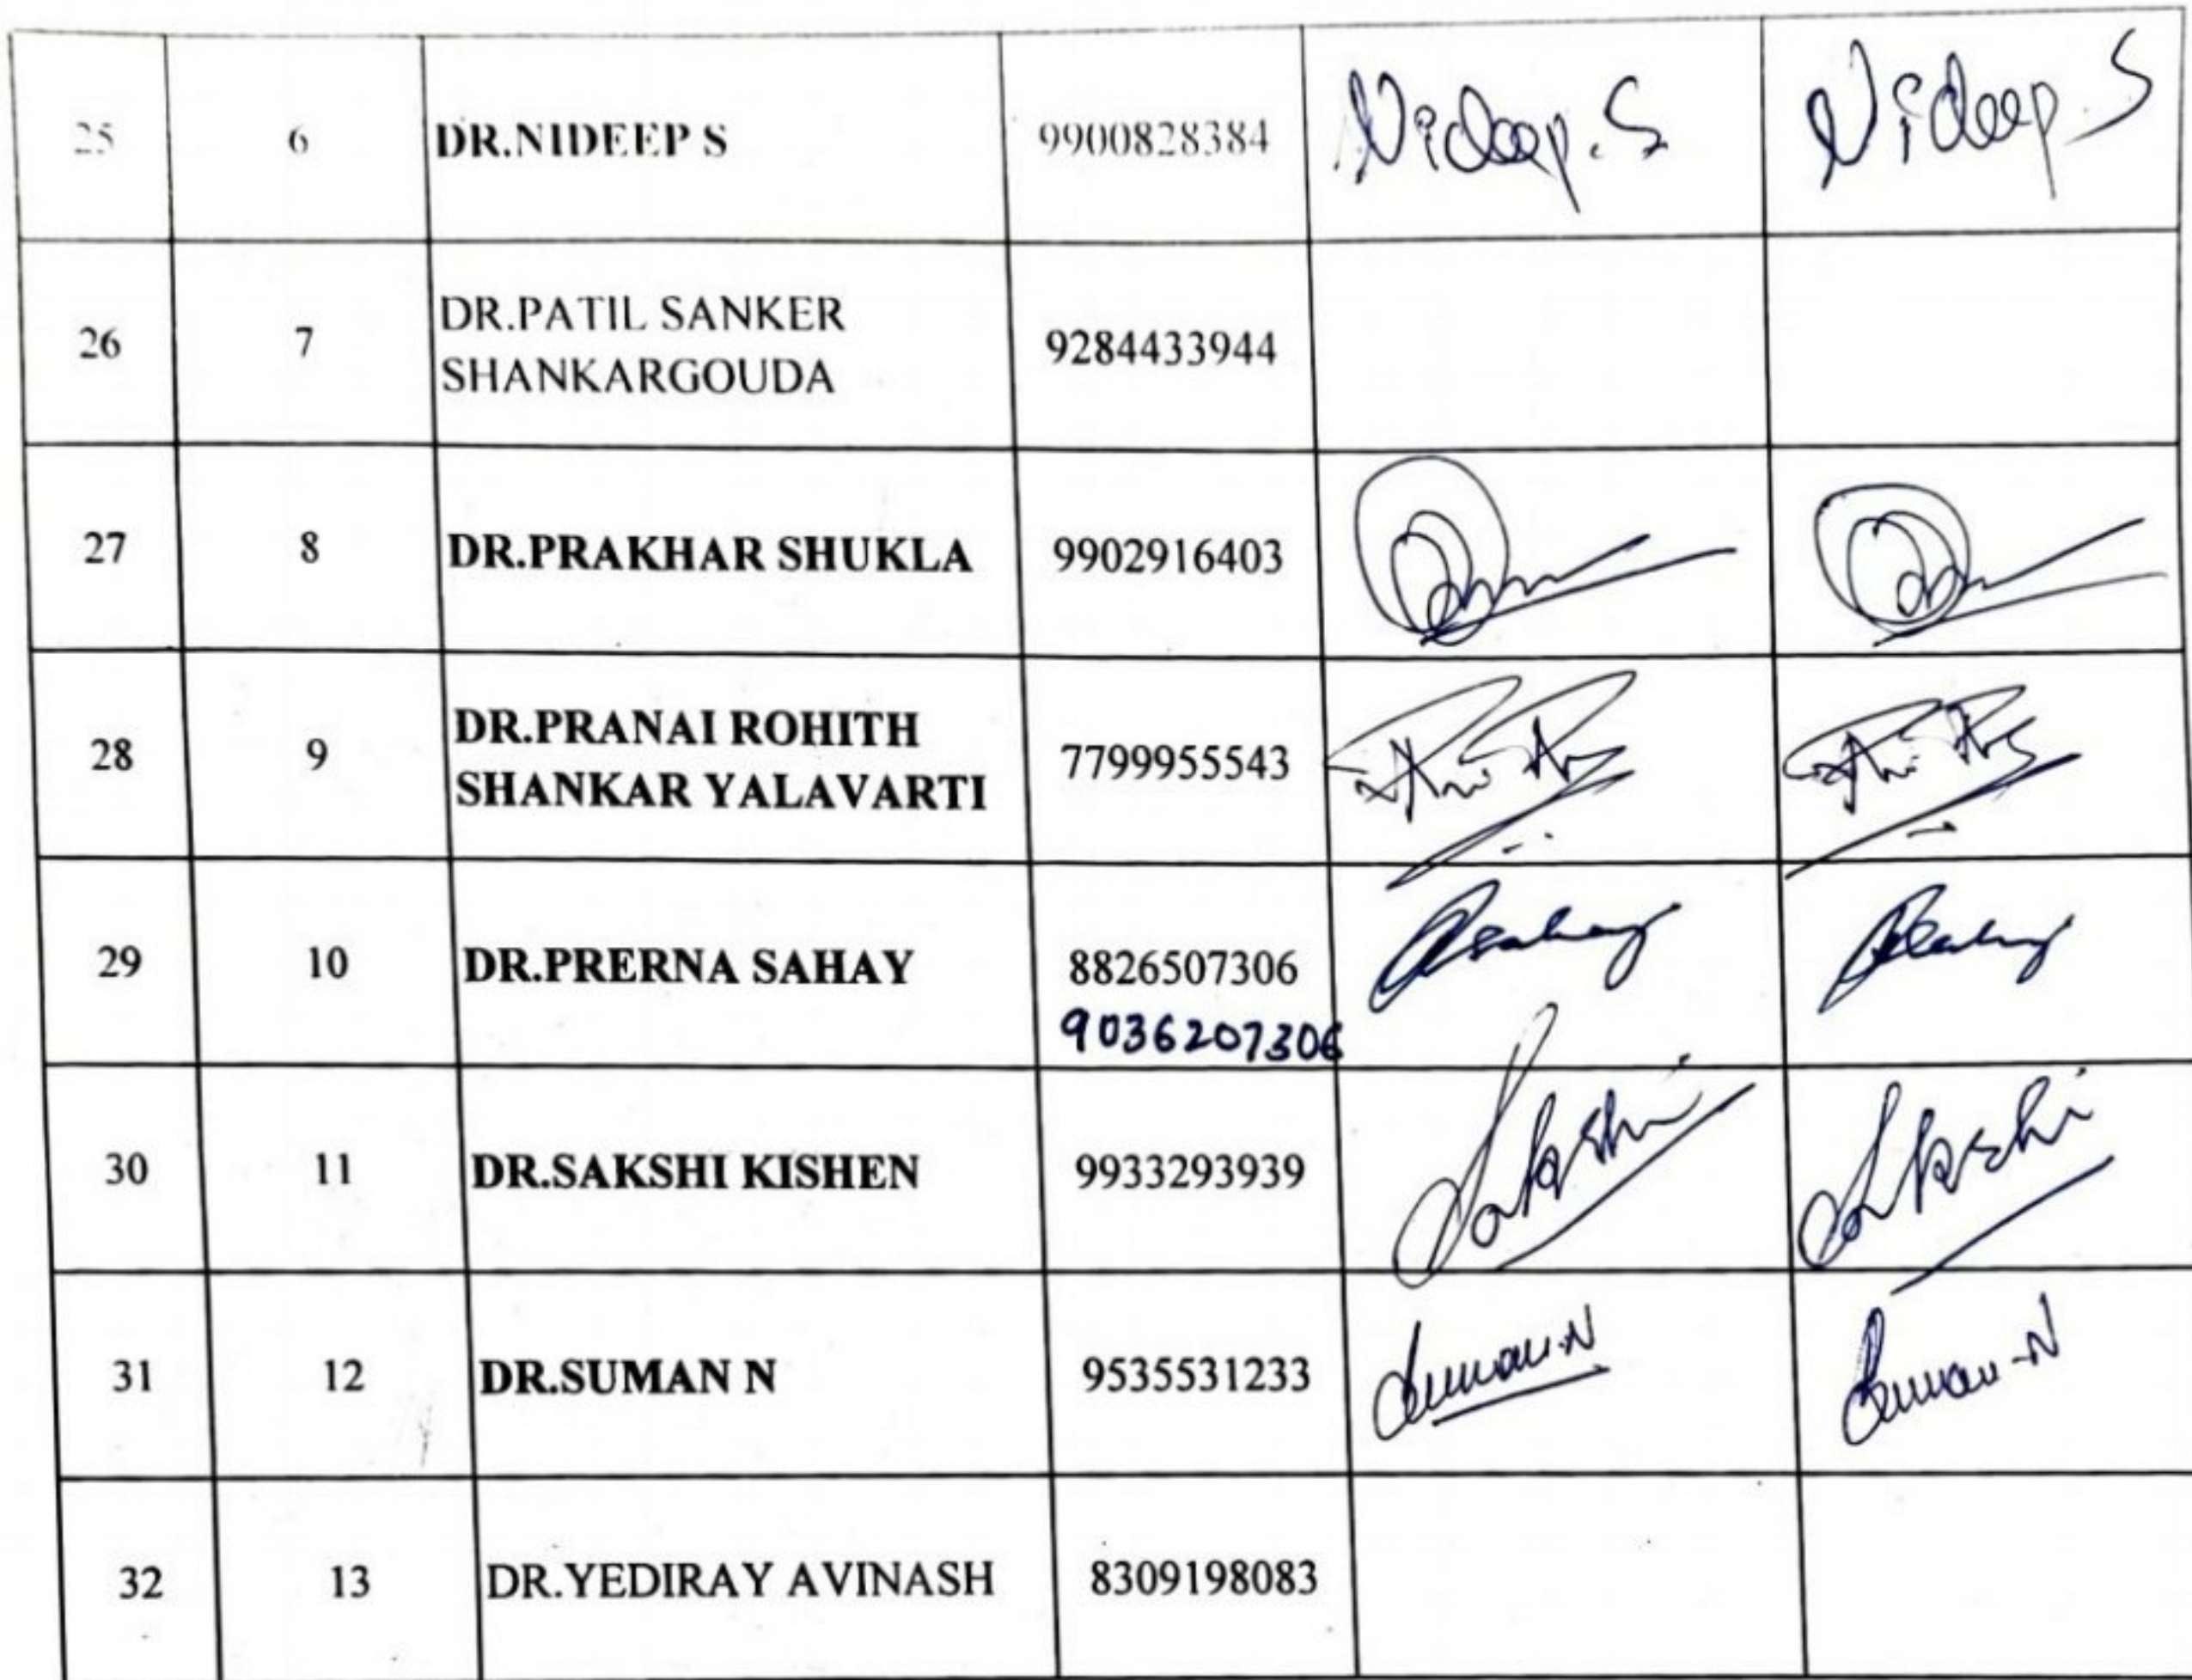 25 6 DR.NIDEEP S 9900828384 Nideep.S Nideep.S
26 7 DR.PATIL SANKER
SHANKARGOUDA 9284433944
27 8 DR.PRAKHAR SHUKLA 9902916403
28 9 DR.PRANAI ROHITH
SHANKAR YALAVARTI 7799955543
29 10 DR.PRERNA SAHAY 8826507306
9036207306
30 11 DR.SAKSHI KISHEN 9933293939 Sakshi Sakshi
31 12 DR.SUMAN N 9535531233 Suman.N Suman-N
32 13 DR.YEDIRAY AVINASH 8309198083